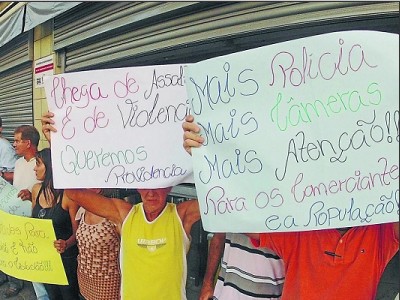 Chega de Assal
E de Violenci
Queremos
Providencia
Mais Polícia
Mais Câmeras
Mais Atenção!!
Para os Comerciante
e a População!